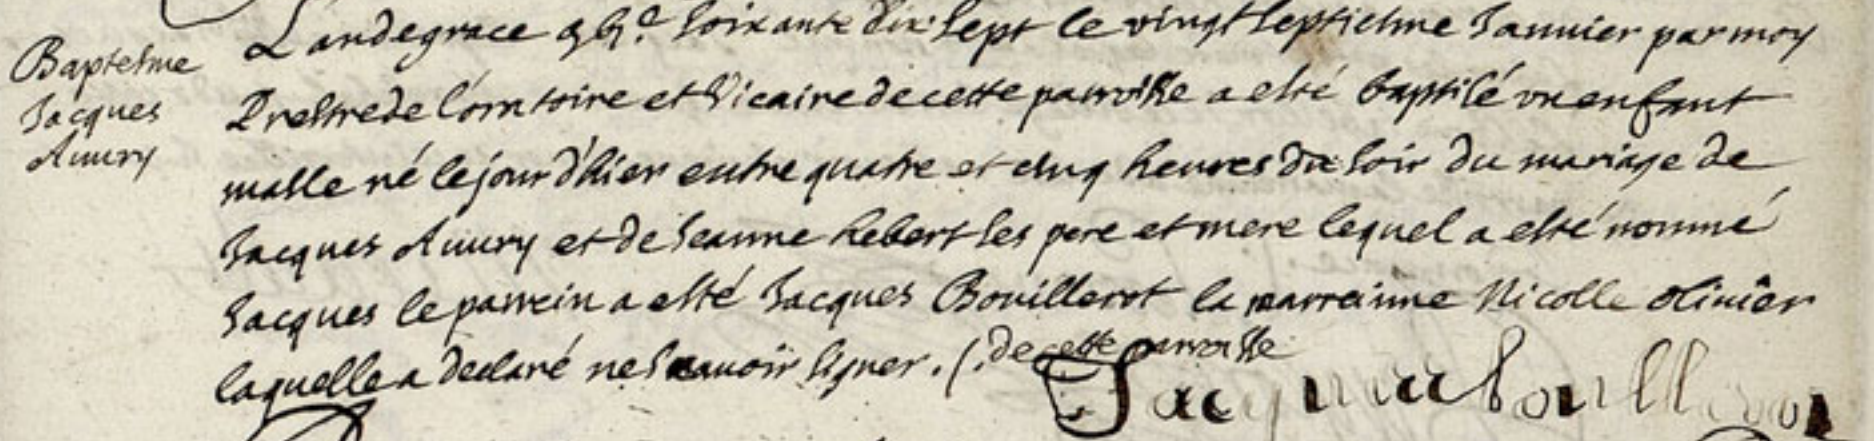 Baptesme
Jacques
Auury
L'an de grace gbjc. soixante dix sept le vingt septiesme Januier par moy
Prestre de l'oratoire et Vicaire de cette parroisse a esté baptisé vn enfant
masle né le jour d'hier entre quatre et cinq heures du soir du mariage de
Jacques Auury et de Jeanne hebert ses pere et mere lequel a esté nommé
Jacques le parrein a esté Jacques Bouillerot la marreinne Nicolle oliuier
laquelle a declaré ne scauoir signer ./. de cette parroisse
Jacques bouillerot